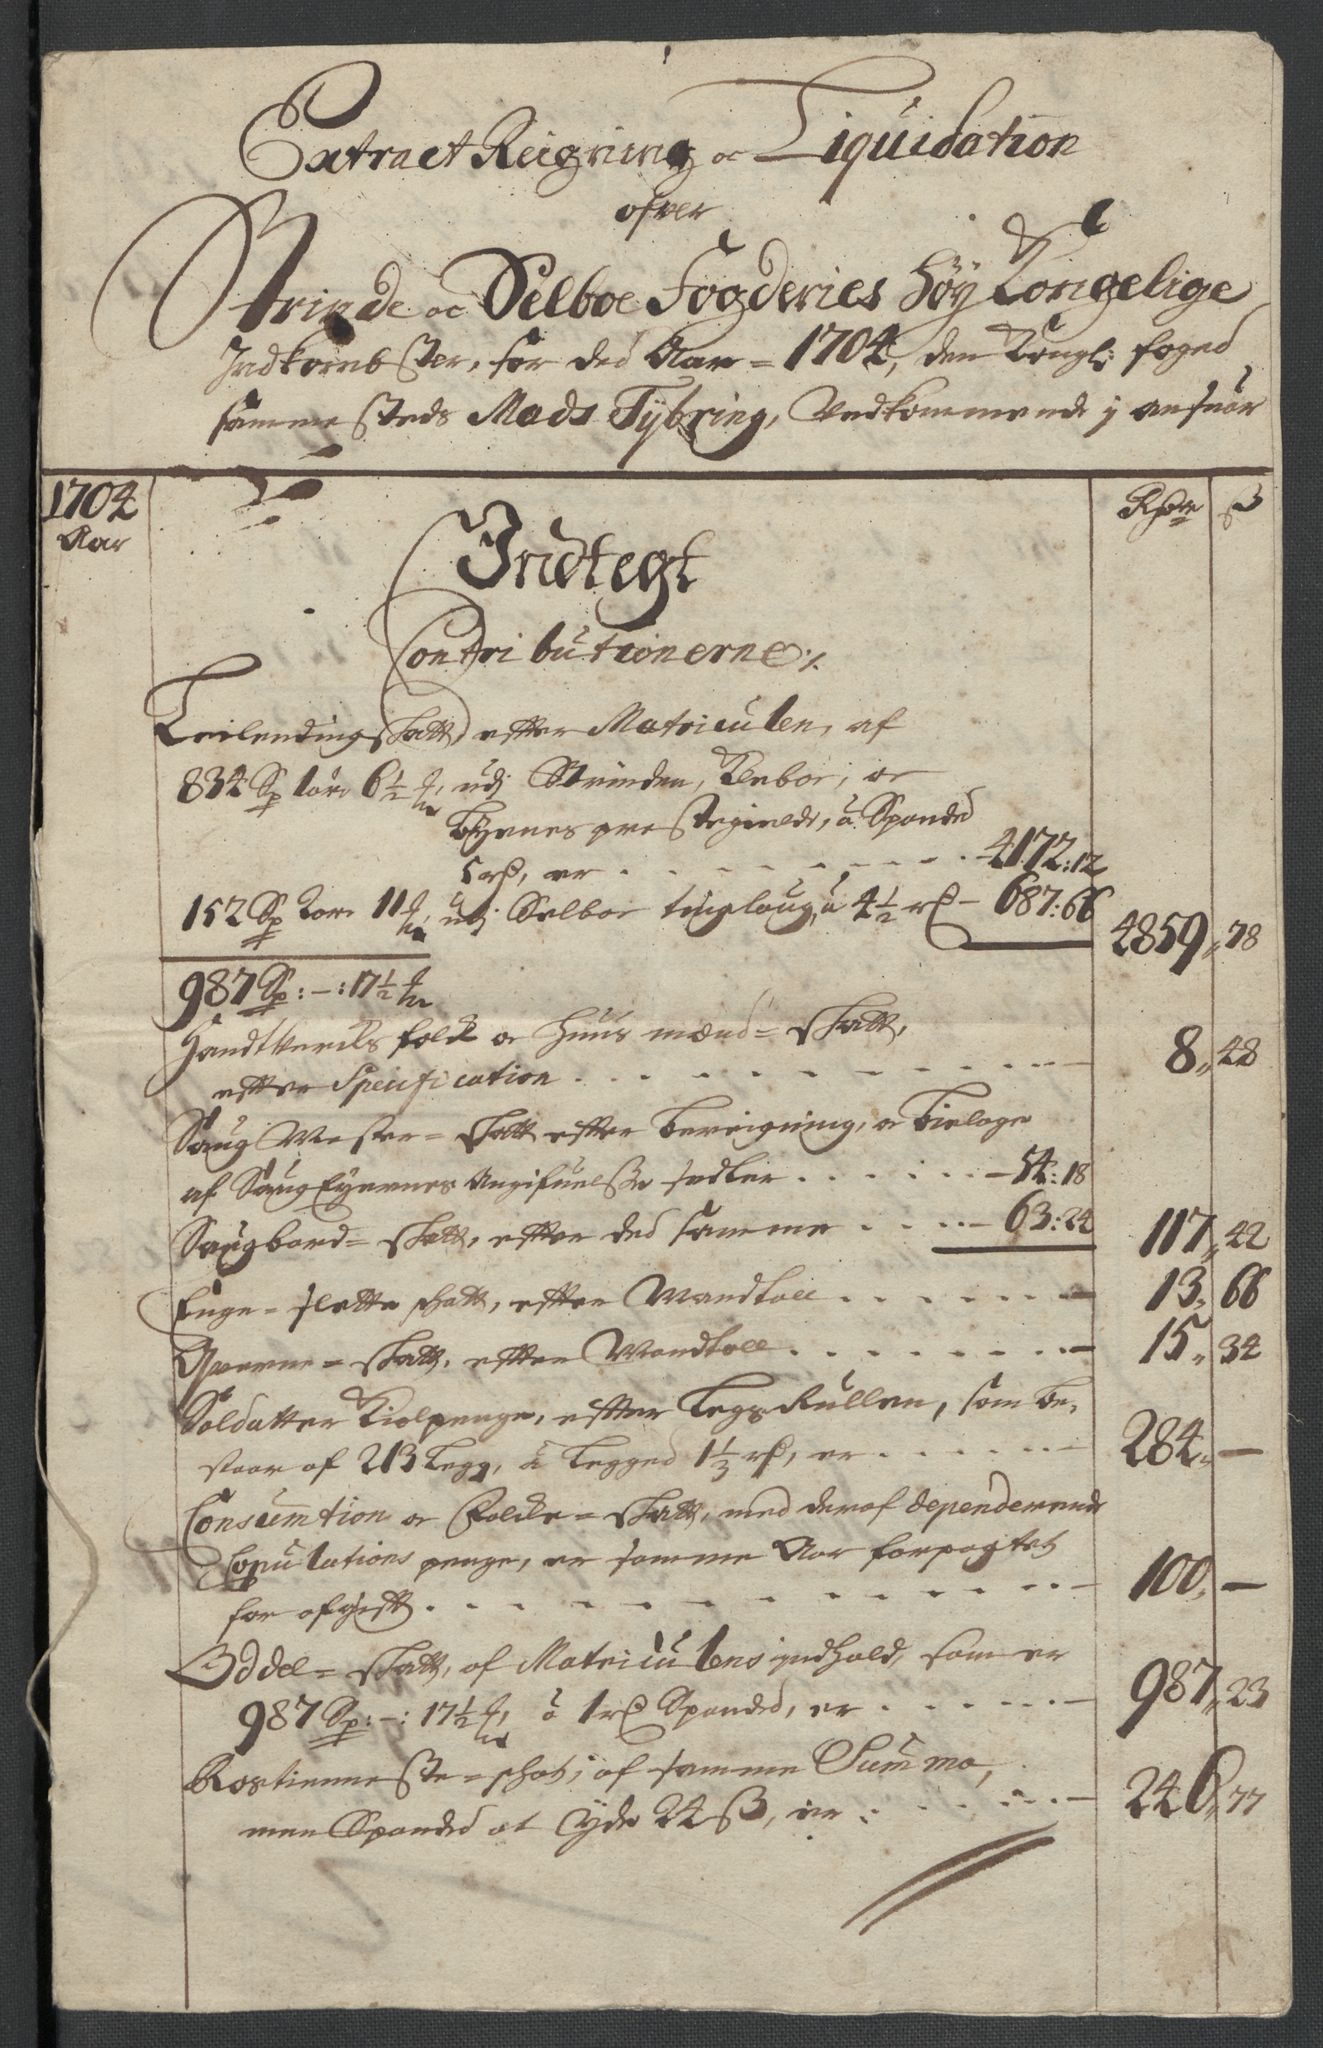 Extract Reigning oc Liquidation
ofver
Strinde oc Selboe Fogderies Høy Kongelige
Indkombster, for ded Aar = 1704, den Kongl: foged
sammesteds Mads Tybring, Vedkommende j ansuar
1704
Aar
Rdr ß
Indtegt
Contributionerne ./.
Leilendingskatt, efter Matriculen, af
834 Sp 1 ør 6½ , udj Strinden, Klæboe, oc
Byenes prestegield, a Spanded
5 rd, er . . . . . . . . . 4172:12
152 Sp 2 ør 11 , udj Selboe tinglaug, a 4½ rd - 687:66 4859,, 78
987 Sp: - : 17½
Handtverks folk oc Huusmænd = skatt,
efter Specification . . . . . . . . . . . 8,, 48
Saug Mester = skatt efter bereigning, oc bielage
af SaugEyernes Angifuelsse sedler . . . . . . - 54:18
Saugbord = skatt, efter ded samme . . . . . - 63:24 117,, 42
Fuge = slette skatt, efter Mandtall . . . . . . . 13,, 66
Qverne = skatt, efter Mandtall . . . . . . . . . 15,, 34
Soldatter Kiolpenge, efter Legs Rullen, som be,
staar af 213 Legg, a Legged 1⅓ rd, er . . . . . . . 284,, —
Consumtion oc Folke = skatt, med deraf dependerende
Copulations penge, er samme Aar forpagtet
for afgift . . . . . . . . . . . . . . 100,, —
Oddel = skatt, af Matriculens indhold, som er
987 Sp: - : 17½ , a 1 rd Spanded, er . . . . . . . 987,, 23
Rostienneste = skat, af samme Summa,
men Spanded at Cyde 24 ß, er . . . . . . . . 246,, 77